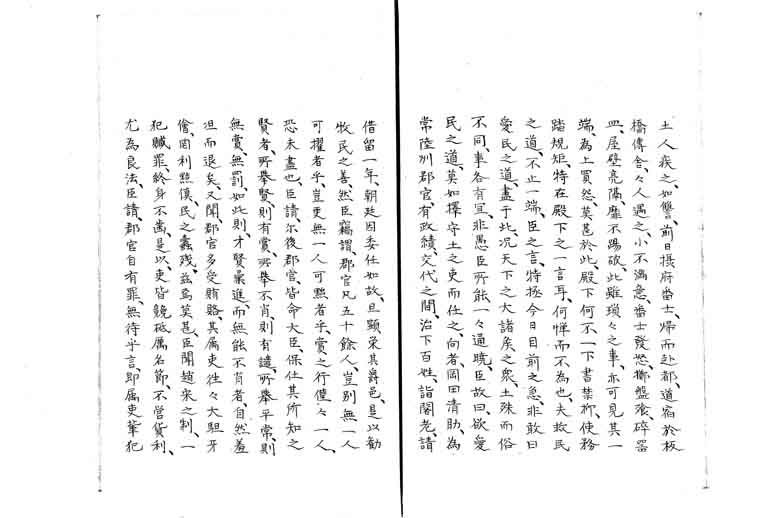 土人疾之、如讐、前日攝府番士、歸而赴都、道宿於板
橋傳舍、々人遇之、小不滿意、番士發怒、擲盤飱、碎器
皿、屋壁亮隔、靡不踢破、此雖瑣々之事、亦可見其一
端、為上買怨、莫甚於此、殿下何不一下書禁抑、使務
踏規矩、特在殿下之一言耳、何憚而不為也、夫救民
之道、不止一端、臣之言、特拯今日目前之急、非敢曰
愛民之道盡于此、况天下之大、諸矦之衆、土殊而俗
不同、事各有宜、非愚臣所能一々通曉、臣故曰、欲愛
民之道、莫如擇守土之吏而任之、向者岡田清助、為
常陸州郡官、有政績、交代之間、治下百姓、詣閣老、請
借留一年、朝廷因委任如故、且顯榮其爵邑、是以勸
牧民之善、然臣竊謂、郡官凡五十餘人、豈別無一人
可擢者乎、豈更無一人可黜者乎、賞之行、僅々一人、
恐未盡也、臣請、尔後郡官、皆命大臣、保任其所知之
賢者、所舉賢、則有賞、所舉不肖、則有譴、所舉平常、則
無賞、無罰、如此則才賢彙進、而無能不肖者、自然羞
沮而退矣、又聞郡官多受賄賂、其属吏往々大駔牙
儈、罔利點傎、民之蠹残、益焉莫甚、臣聞趙宋之制、一
犯贓罪、終身不齒、是以吏皆競砥厲名節、不営貨利、
尤為良法、臣請、郡官自有罪、無待乎言、即属吏輩犯